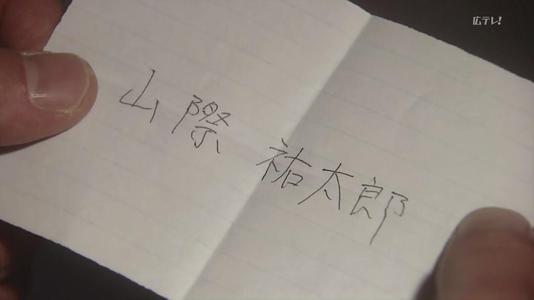 広テレ!
山際 祐太郎